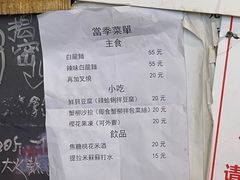 當季菜單
主食
白龍麵 55元
辣味白龍麵 55元
再加叉燒 20元
小吃
鮮貝豆腐（雜蛤蜊拌豆腐） 20元
蟹柳沙拉（即食蟹柳拌包菜絲） 20元
櫻花果凍（可外賣） 20元
飲品
焦糖桃花米酒 20元
提拉米蘇蘇打水 15元